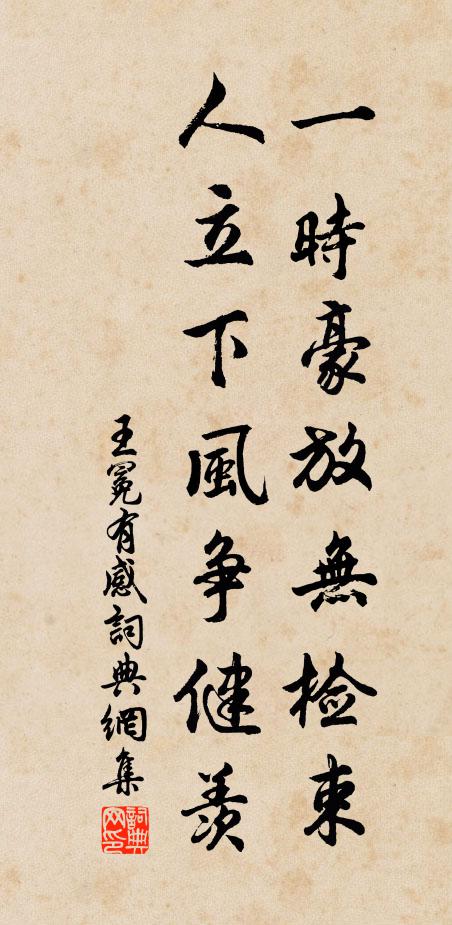 一時豪放無檢束
人立下風爭健羨
王冕有感詞典網集
詞典網印